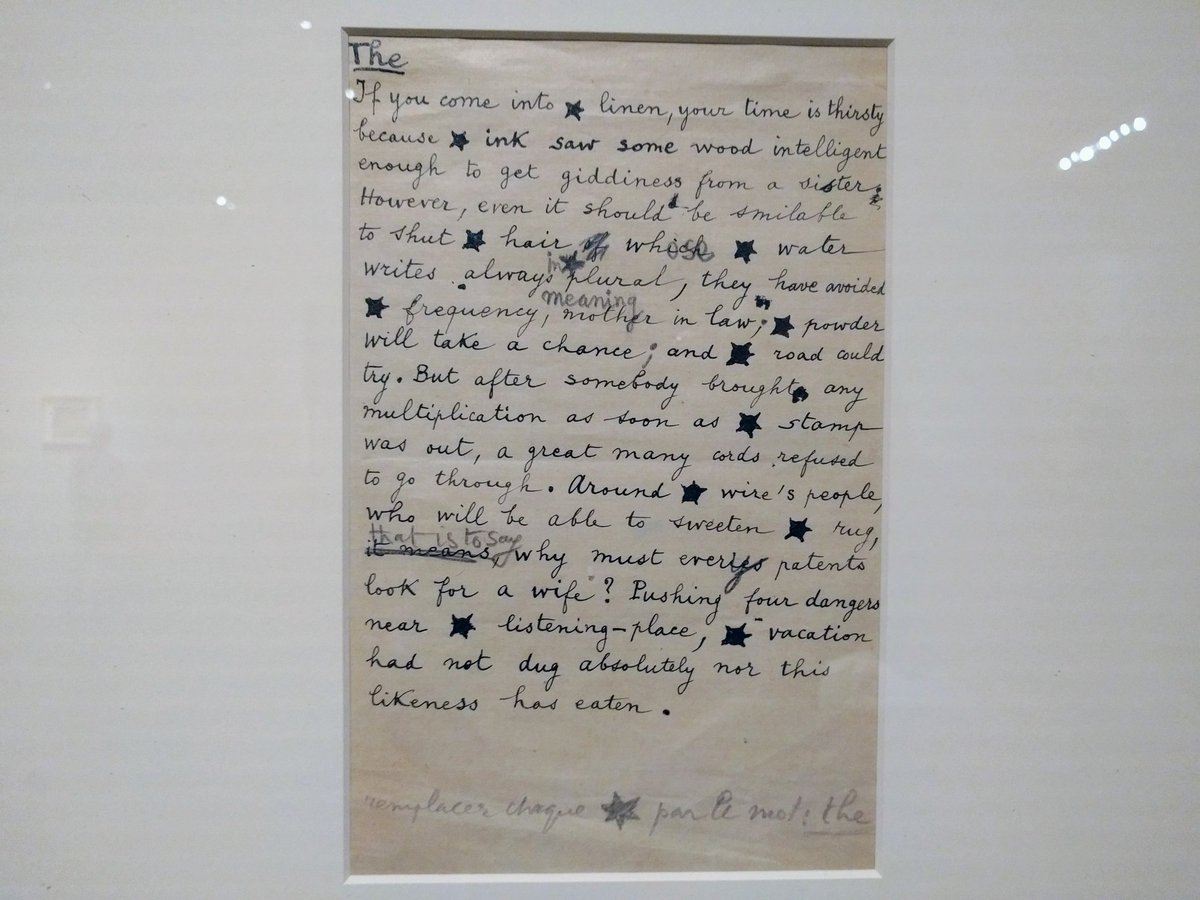 The
If you come into ★ linen, your time is thirsty
because ★ ink saw some wood intelligent
enough to get giddiness from a sister.
However, even it should be smilable
to shut ★ hair of which ★ water
writes always in ★ plural, they have avoided
★ frequency, meaning mother in law; ★ powder
will take a chance; and ★ road could
try. But after somebody brought any
multiplication as soon as ★ stamp
was out, a great many cords refused
to go through. Around ★ wire's people,
who will be able to sweeten ★ rug,
that is to say
it means, why must every patents
look for a wife? Pushing four dangers
near ★ listening-place, ★ vacation
had not dug absolutely nor this
likeness has eaten.
remplacer chaque ★ par le mot: the